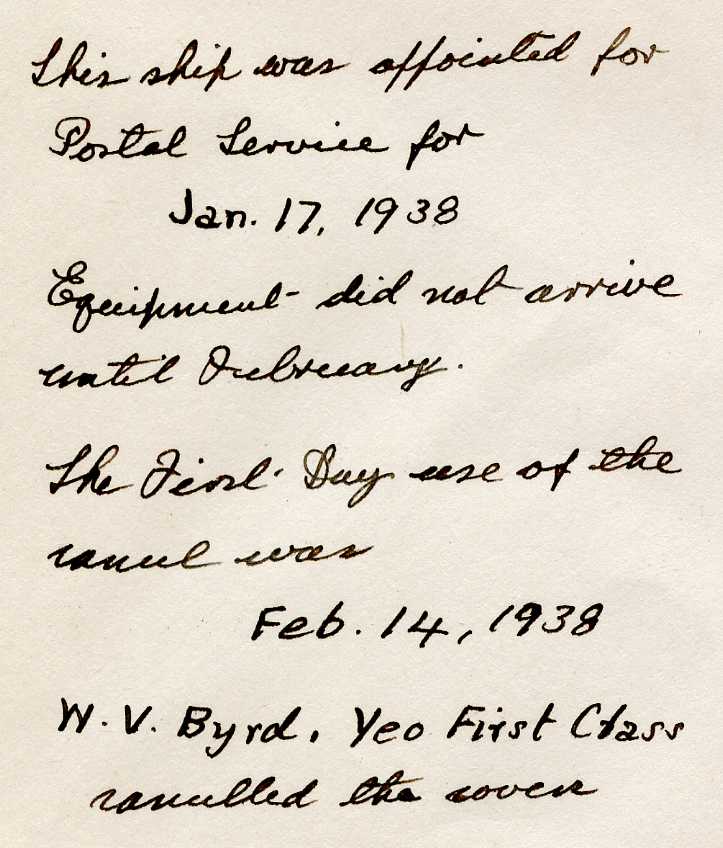 This ship was appointed for
Postal Service for
Jan. 17, 1938
Equipment did not arrive
until February.
The First Day use of the
cancel was
Feb. 14, 1938
W. V. Byrd, Yeo First Class
cancelled the cover